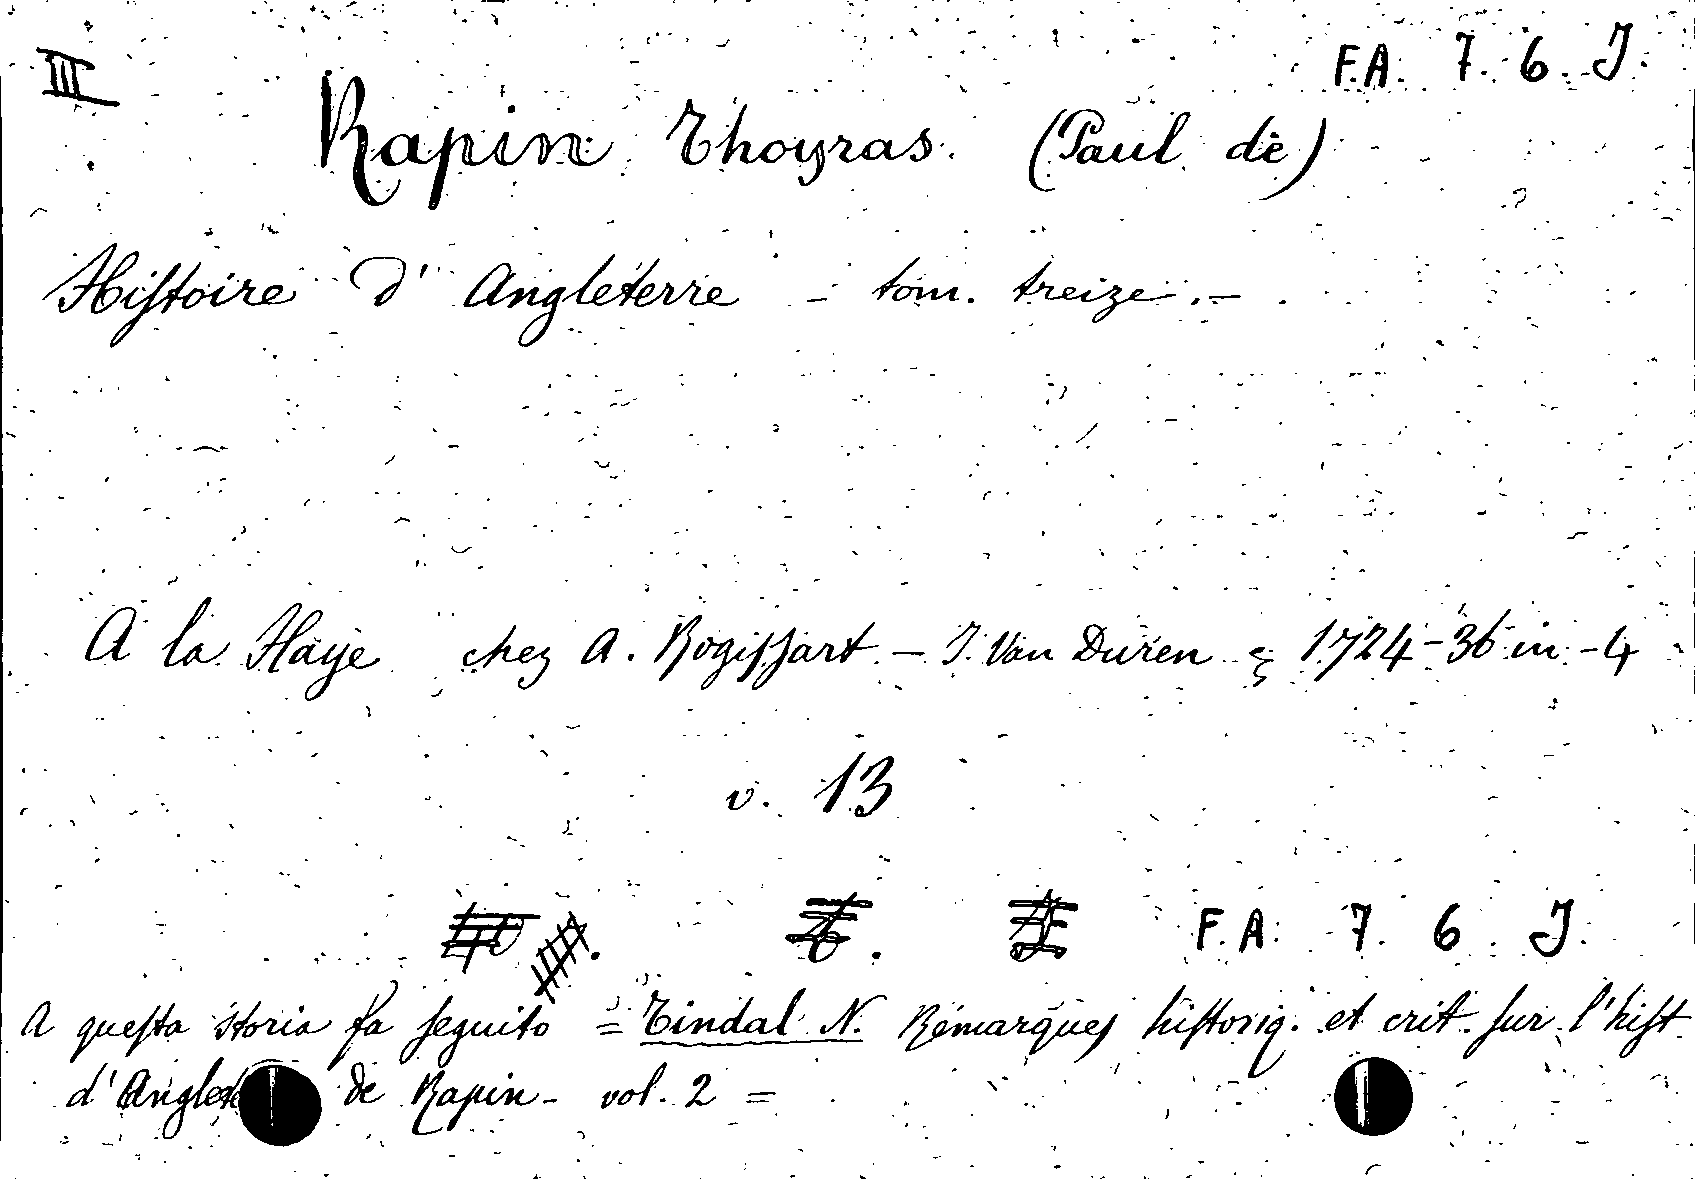 III
F.A. 7. 6. J.
Rapin Thoyras. (Paul de)
Histoire d' Angleterre - tom. treize. -
A la Haye chez A. Rogissart - J. Van Duren 1724-36 in -4
v. 13
F. A. 7. 6. J.
A questa storia fa seguito = Tindal N. Remarques historiq. et crit. sur l'hist.
d'Anglet de Rapin - vol. 2 =